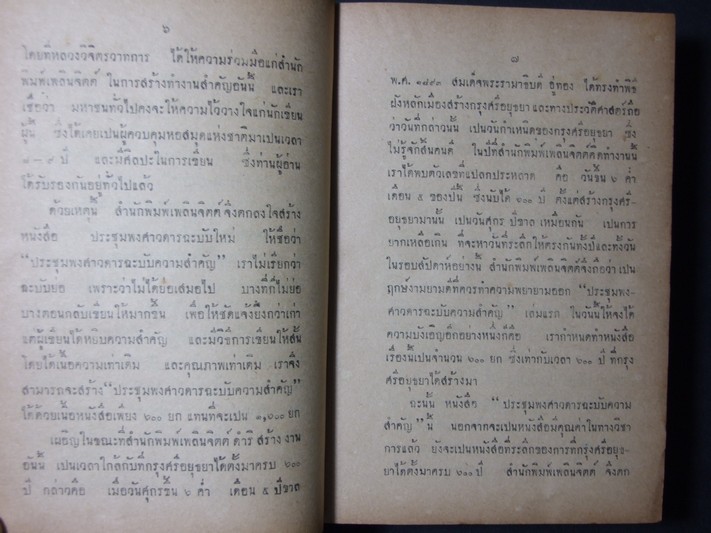 ๖
โดยที่หลวงวิจิตรวาทการ ได้ให้ความร่วมมือแก่สำนัก
พิมพ์เพลินจิตต์ ในการสร้างทำงานสำคัญอันนี้ และเรา
เชื่อว่า มหาชนทั่วไปคงจะให้ความไว้วางใจแก่นักเขียน
ผู้นี้ ซึ่งได้เคยเป็นผู้ควบคุมหอสมุดแห่งชาติมาเป็นเวลา
๘–๙ ปี และมีศิลปะในการเขียน ซึ่งท่านผู้อ่าน
ได้รับรองกันอยู่ทั่วไปแล้ว
ด้วยเหตุนี้ สำนักพิมพ์เพลินจิตต์ จึงตกลงใจสร้าง
หนังสือ ประชุมพงศาวดารฉะบับใหม่ ให้ชื่อว่า
“ประชุมพงศาวดารฉะบับความสำคัญ” เราไม่เรียกว่า
ฉะบับย่อ เพราะว่าไม่ได้ย่อเสมอไป บางทีก็ไม่ย่อ
บางตอนกลับเขียนให้มากขึ้น เพื่อให้ชัดแจ้งยิ่งกว่าเก่า
แต่ผู้เขียนได้หยิบความสำคัญ และมีวิธีการเขียนให้สั้น
โดยได้เนื้อความเท่าเดิม และคุณภาพเท่าเดิม เราจึง
สามารถจะสร้าง “ประชุมพงศาวดารฉะบับความสำคัญ”
ได้ด้วยเนื้อหนังสือเพียง ๖๐๐ ยก แทนที่จะเป็น ๑,๖๐๐ ยก
เผอิญในขณะที่สำนักพิมพ์เพลินจิตต์ ดำริ สร้าง งาน
อันนี้ เป็นเวลาใกล้กับที่กรุงศรีอยุธยาได้ตั้งมาครบ ๖๐๐
ปี กล่าวคือ เมื่อวันศุกร์ขึ้น ๖ ค่ำ เดือน ๕ ปีขาล
๗
พ.ศ. ๑๘๙๓ สมเด็จพระรามาธิบดี อู่ทอง ได้ทรงทำพิธี
ฝังหลักเมืองสร้างกรุงศรีอยุธยา และทางประวัติศาสตร์ถือ
ว่าวันที่กล่าวนั้น เป็นวันกำเหนิดของกรุงศรีอยุธยา ซึ่ง
ไม่รู้จักสิ้นคนดี ในปีที่สำนักพิมพ์เพลินจิตต์คิดทำงานนี้
เราได้พบตัวเลขที่แปลกประหลาด คือ วันขึ้น ๖ ค่ำ
เดือน ๕ ของปีนี้ ซึ่งนับได้ ๖๐๐ ปี ตั้งแต่สร้างกรุงศรี-
อยุธยามานั้น เป็นวันศุกร ปีขาล เหมือนกัน เป็นการ
ยากเหลือเกิน ที่จะหาวันที่ระลึกให้ตรงกันทั้งปีและทั้งวัน
ในรอบสัปดาห์อย่างนี้ สำนักพิมพ์เพลินจิตต์จึงถือว่าเป็น
ฤกษ์งามยามดีที่ควรทำความพยายามออก “ประชุมพง-
ศาวดารฉะบับความสำคัญ” เล่มแรก ในวันนี้ให้จงได้
ความบังเอิญอีกอย่างหนึ่งก็คือ เรากำหนดทำหนังสือ
เรื่องนี้เป็นจำนวน ๖๐๐ ยก ซึ่งเท่ากับเวลา ๖๐๐ ปี ที่กรุง
ศรีอยุธยาได้สร้างมา
ฉะนั้น หนังสือ “ประชุมพงศาวดารฉะบับความ
สำคัญ” นี้ นอกจากจะเป็นหนังสือมีคุณค่าในทางวิชา
การแล้ว ยังจะเป็นหนังสือที่ระลึกของการที่กรุงศรีอยุธ-
ยาได้ตั้งมาครบ ๖๐๐ ปี สำนักพิมพ์เพลินจิตต์ จึงตก